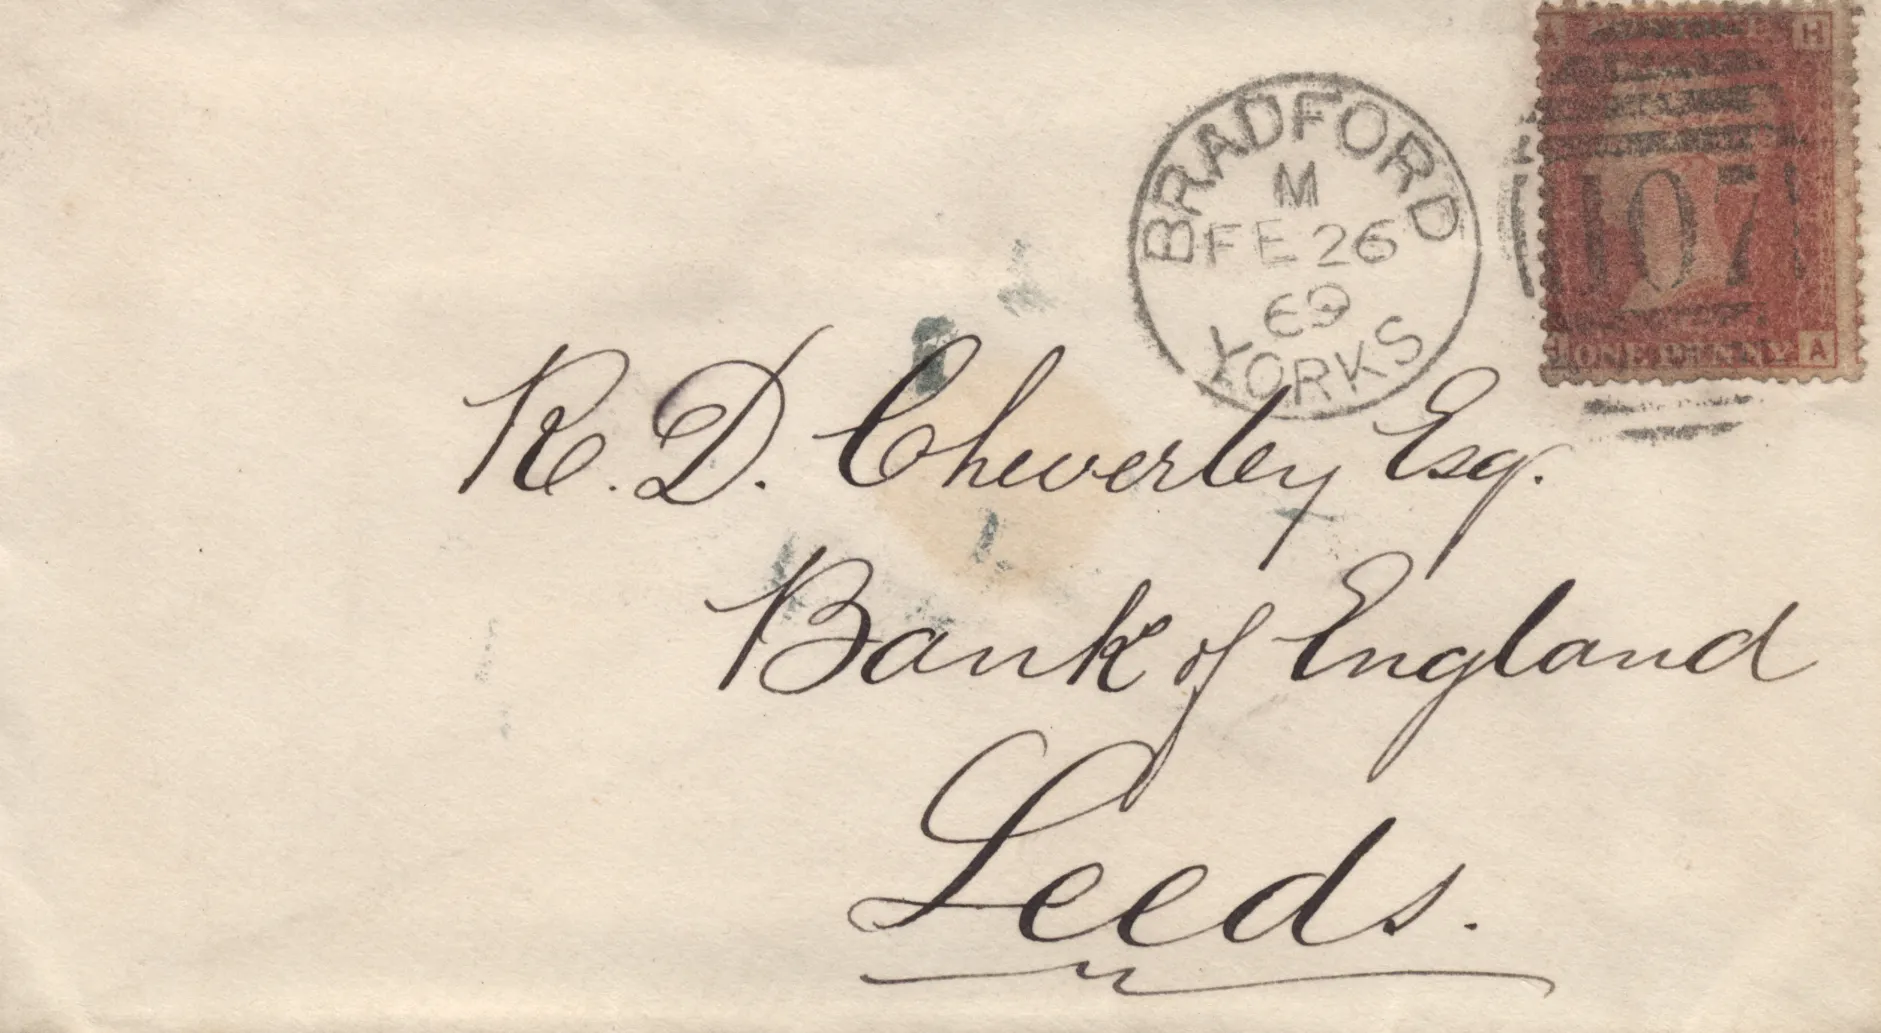 BRADFORD
M
FE 26
69
YORKS
H
107
ONE PENNY
A
R. D. Cheverley Esq.
Bank of England
Leeds.